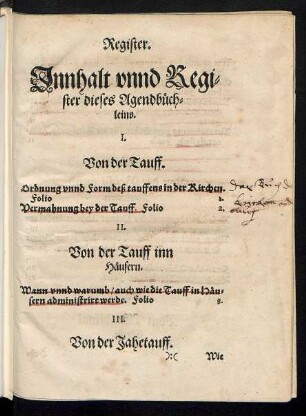 Register.
Innhalt vnnd Regi-
ster dieses Agendbüch-
leins.
I.
Von der Tauff.
Ordnung vnnd Form deß tauffens in der Kirchen.
Folio 1.
Vermahnung bey der Tauff. Folio 2.
II.
Von der Tauff inn
Häusern.
Wann vnnd warumb / auch wie die Tauff in Häu-
sern administrirt werde. Folio 8.
III.
Von der Jahetauff.
):( Wie